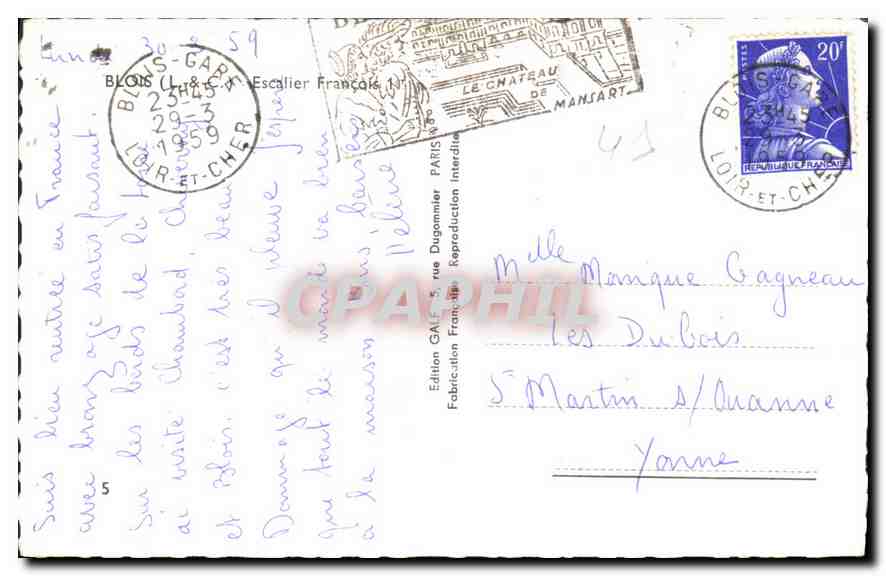 Lundi 30 59
BLOIS (L.-&-C.) Escalier François Ier
Suis bien rentrée en France
avec bronzage satisfaisant.
Sur les bords de la Loire
ai visité Chambord, Cheverny
et Blois. c'est très beau
Dommage qu'il pleuve. J'espère
que tout le monde va bien
à la maison. Bons baisers
Hélène
5
BLOIS-GARE
23H45
29-3
1959
LOIR-ET-CHER
LE CHATEAU
DE
MANSART
POSTES
20F
REPUBLIQUE FRANÇAISE
BLOIS-GARE
23H45
29-3
1959
LOIR-ET-CHER
41
Edition GALF 5, rue Dugommier PARIS
Fabrication Française Reproduction Interdite
CPAPHIL
Melle Monique Gagneau
Les Dubois
St Martin s/ Ouanne
Yonne